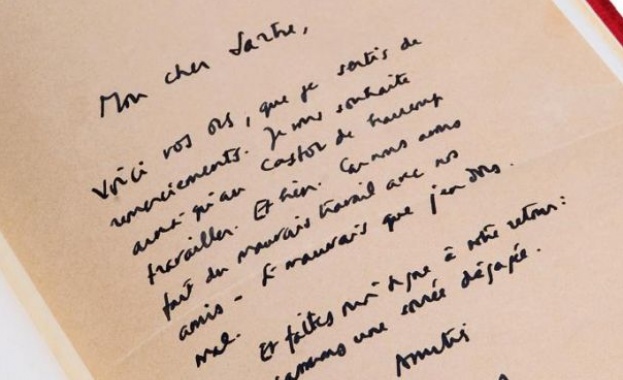 Mon cher Sartre,
Voici vos ors, que je sortis de
remerciements. Je vous souhaite
ainsi qu'au Castor de beaucoup
travailler. Et bien. Car nous avons
fait du mauvais travail avec nos
amis - Si mauvais que j'en dors
mal.
Et faites moi signe à votre retour :
une soirée dégagée.
Amitiés